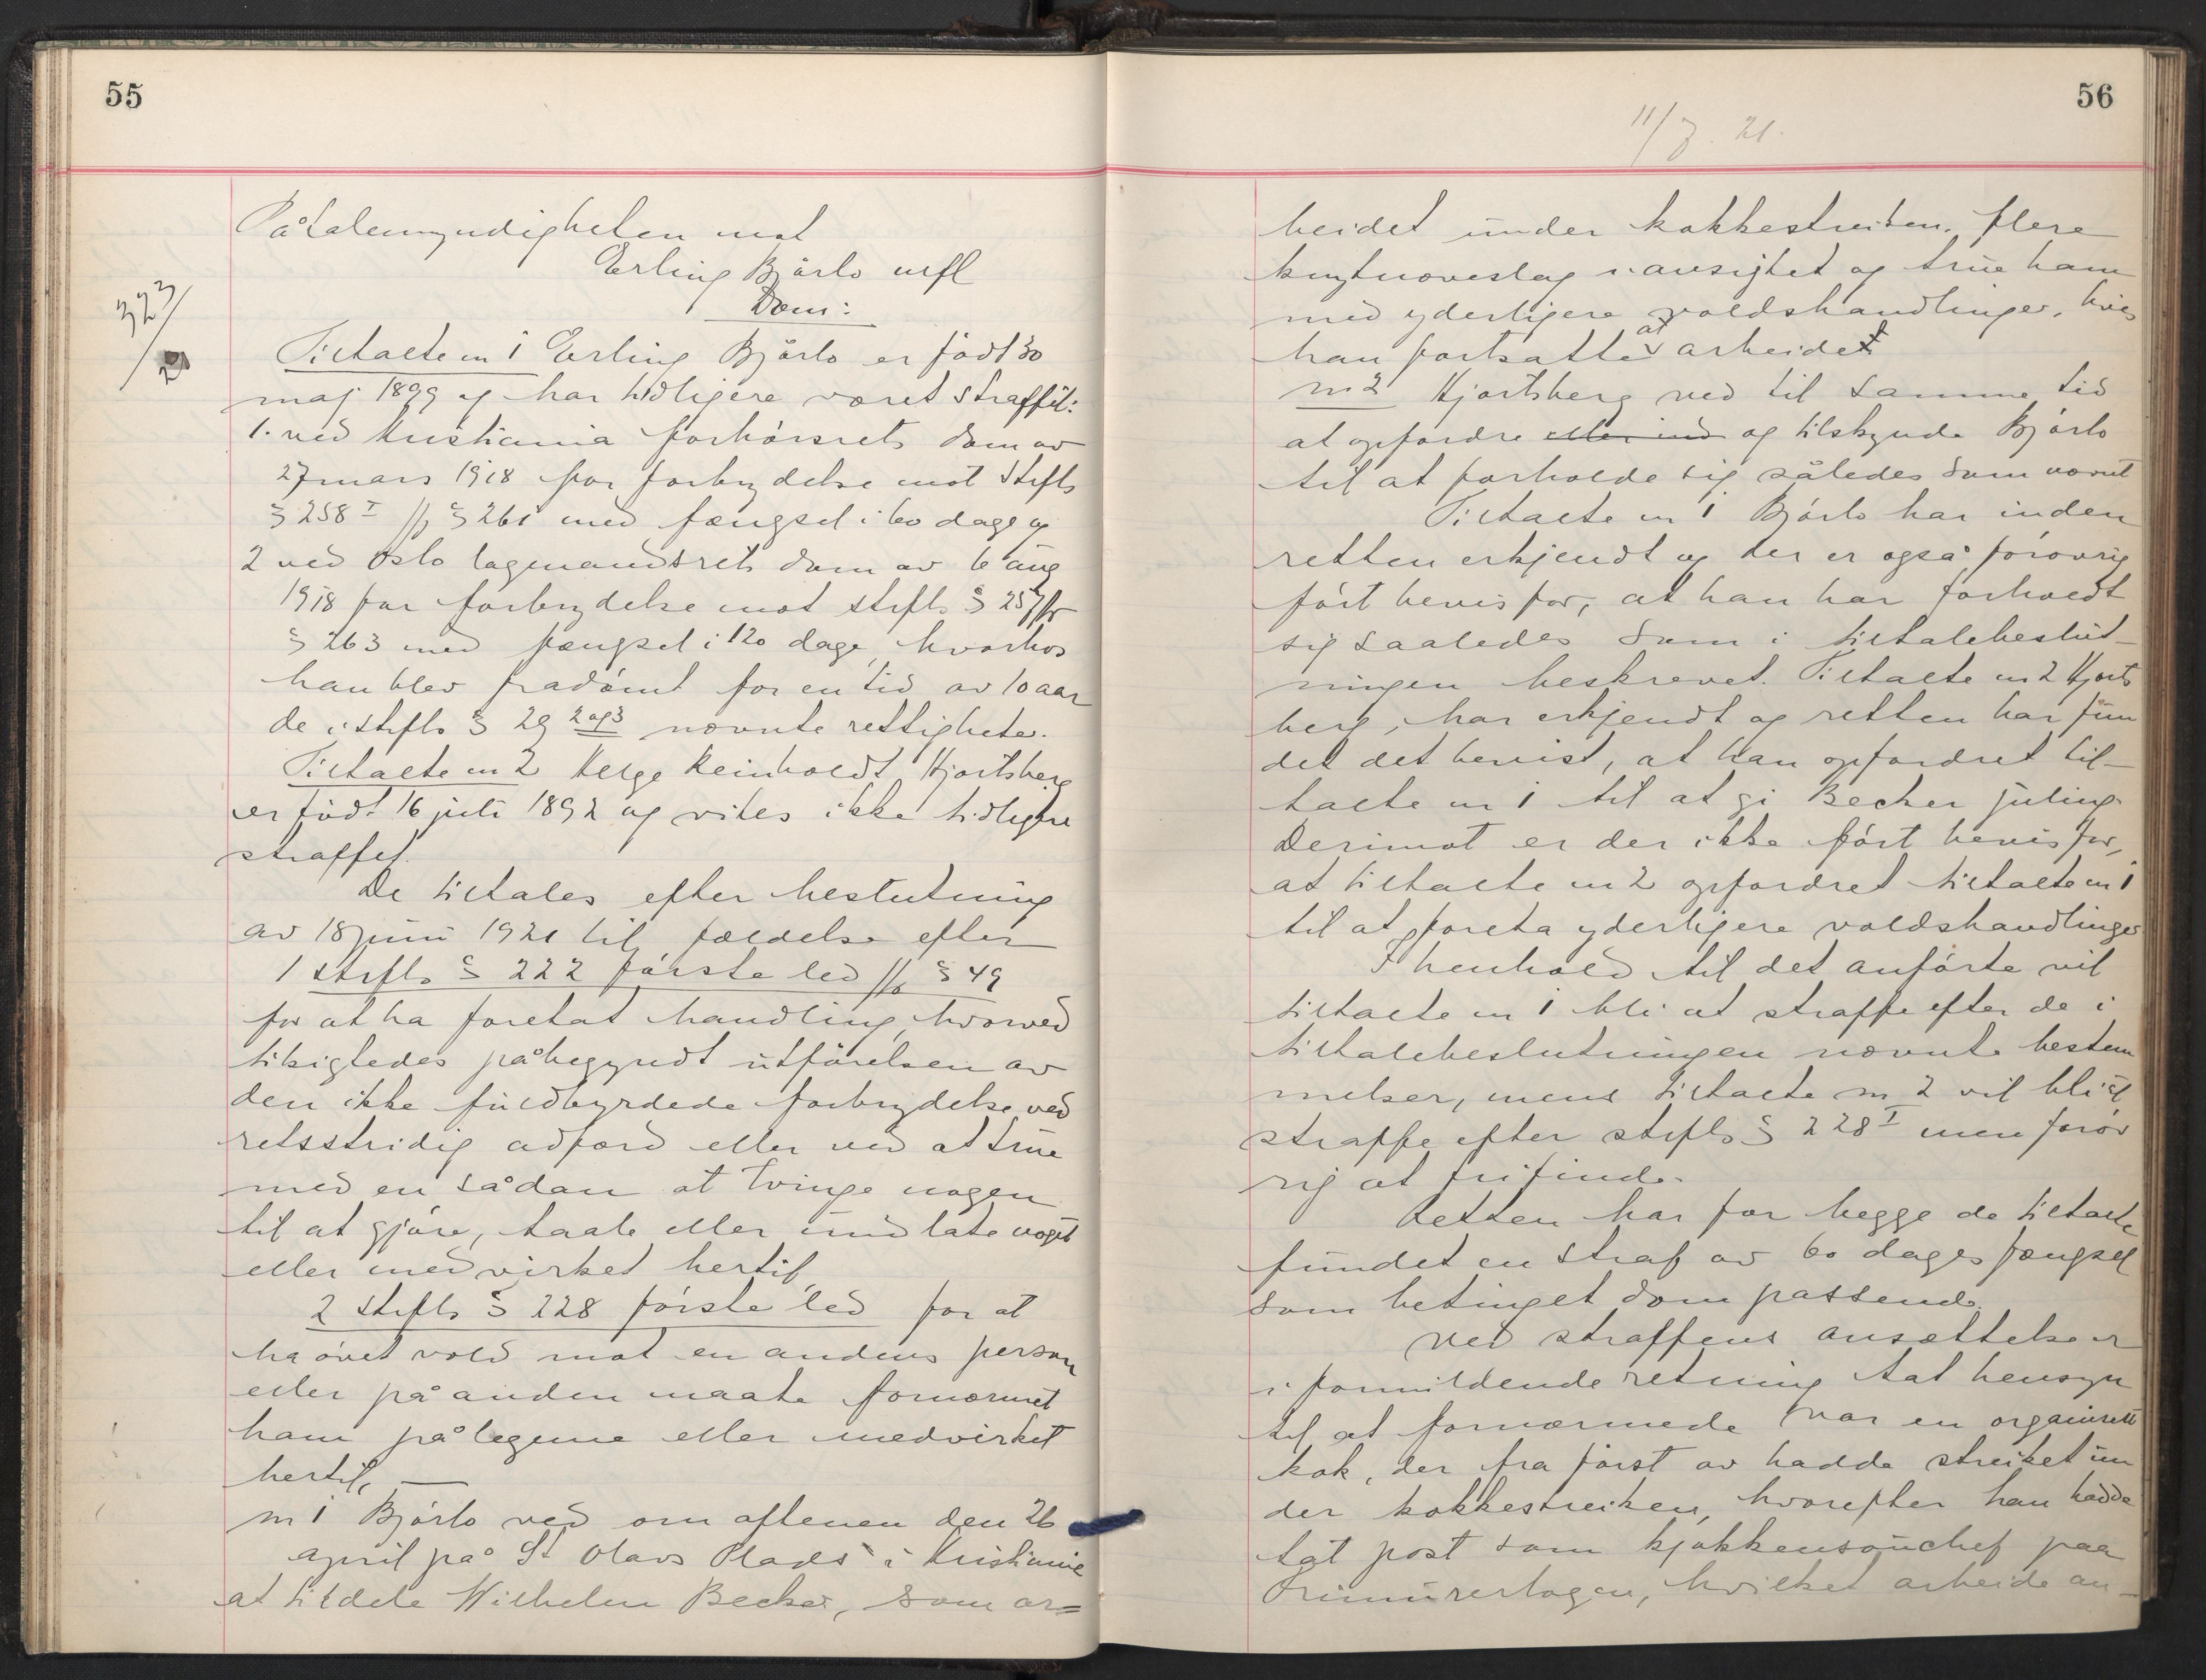 55
Påtalemyndigheten mot
Erling Bjårlo mfl
Dom:
323/
Tiltalte nr 1 Erling Bjårlo er født 30
maj 1899 og har tidligere været straffet:
1. ved Kristiania forhørsrets dom av
27 mars 1918 for forbrydelse mot strfls
§ 258 I jfr § 261 med fængsel i 60 dage og
2 ved Oslo lagmandsrets dom av 6 aug
1918 for forbrydelse mot strfls § 257 jfr
§ 263 med fængsel i 120 dage, hvorhos
han blev fradømt for en tid av 10 aar
de i strfls § 29 2 og 3 nævnte rettigheter.
Tiltalte nr 2 Helge Reinholdt Hjortsberg
er født 16 juli 1892 og vites ikke tidligere
straffet.
De tiltales efter beslutning
av 18 juni 1921 til fældelse efter
1 strfls § 222 første led jfr § 49
for at ha foretat handling hvorved
tilsigtedes påbegyndt utførelsen av
den ikke fuldbyrdede forbrydelse ved
retsstridig adfærd eller ved at true
med en sådan at tvinge nogen
til at gjøre, taale eller undlate noget
eller medvirket hertil,
2 strfls § 228 første led for at
ha øvet vold mot en andens person
eller på anden maate fornærmet
ham på legeme eller medvirket
hertil, —
nr 1 Bjårlo ved om aftenen den 26
april på St Olavs Plads i Kristiania
at tildele Wilhelm Becker, som ar=
56
11/7. 21.
beidet under kokkestreiken, flere
knytnæveslag i ansigtet og true ham
med yderligere voldshandlinger, hvis
han fortsatte at arbeidet
nr 2 Hjortsberg ved til samme tid
at opfordre eller ind og tilskynde Bjårlo
til at forholde sig således som nævnt
Tiltalte nr 1 Bjårlo har inden
retten erkjendt og der er også forøvrig
ført bevis for, at han har forholdt
sig saaledes som i tiltalebeslut-
ningen beskrevet. Tiltalte nr 2 Hjorts
berg, har erkjendt og retten har fun
det det bevist, at han opfordret til-
talte nr 1 til at gi Becker juling.
Derimot er der ikke ført bevis for,
at tiltalte nr 2 opfordret tiltalte nr 1
til at foreta yderligere voldshandlinger
I henhold til det anførte vil
tiltalte nr 1 bli at straffe efter de i
tiltalebeslutningen nævnte bestem
melser, mens tiltalte nr 2 vil bli at
straffe efter strfls § 228 I men forøv
rig at frifinde.
Retten har for begge de tiltalte
fundet en straf av 60 dages fængsel
som betinget dom passende.
Ved straffens ansættelse er
i formildende retning tat hensyn
til at fornærmede var en organisert
kok, der fra først av hadde streiket un
der kokkestreiken, hvorefter han hadde
tat post som kjøkkensouchef paa
Frimurerlogen, hvilket arbeide an-